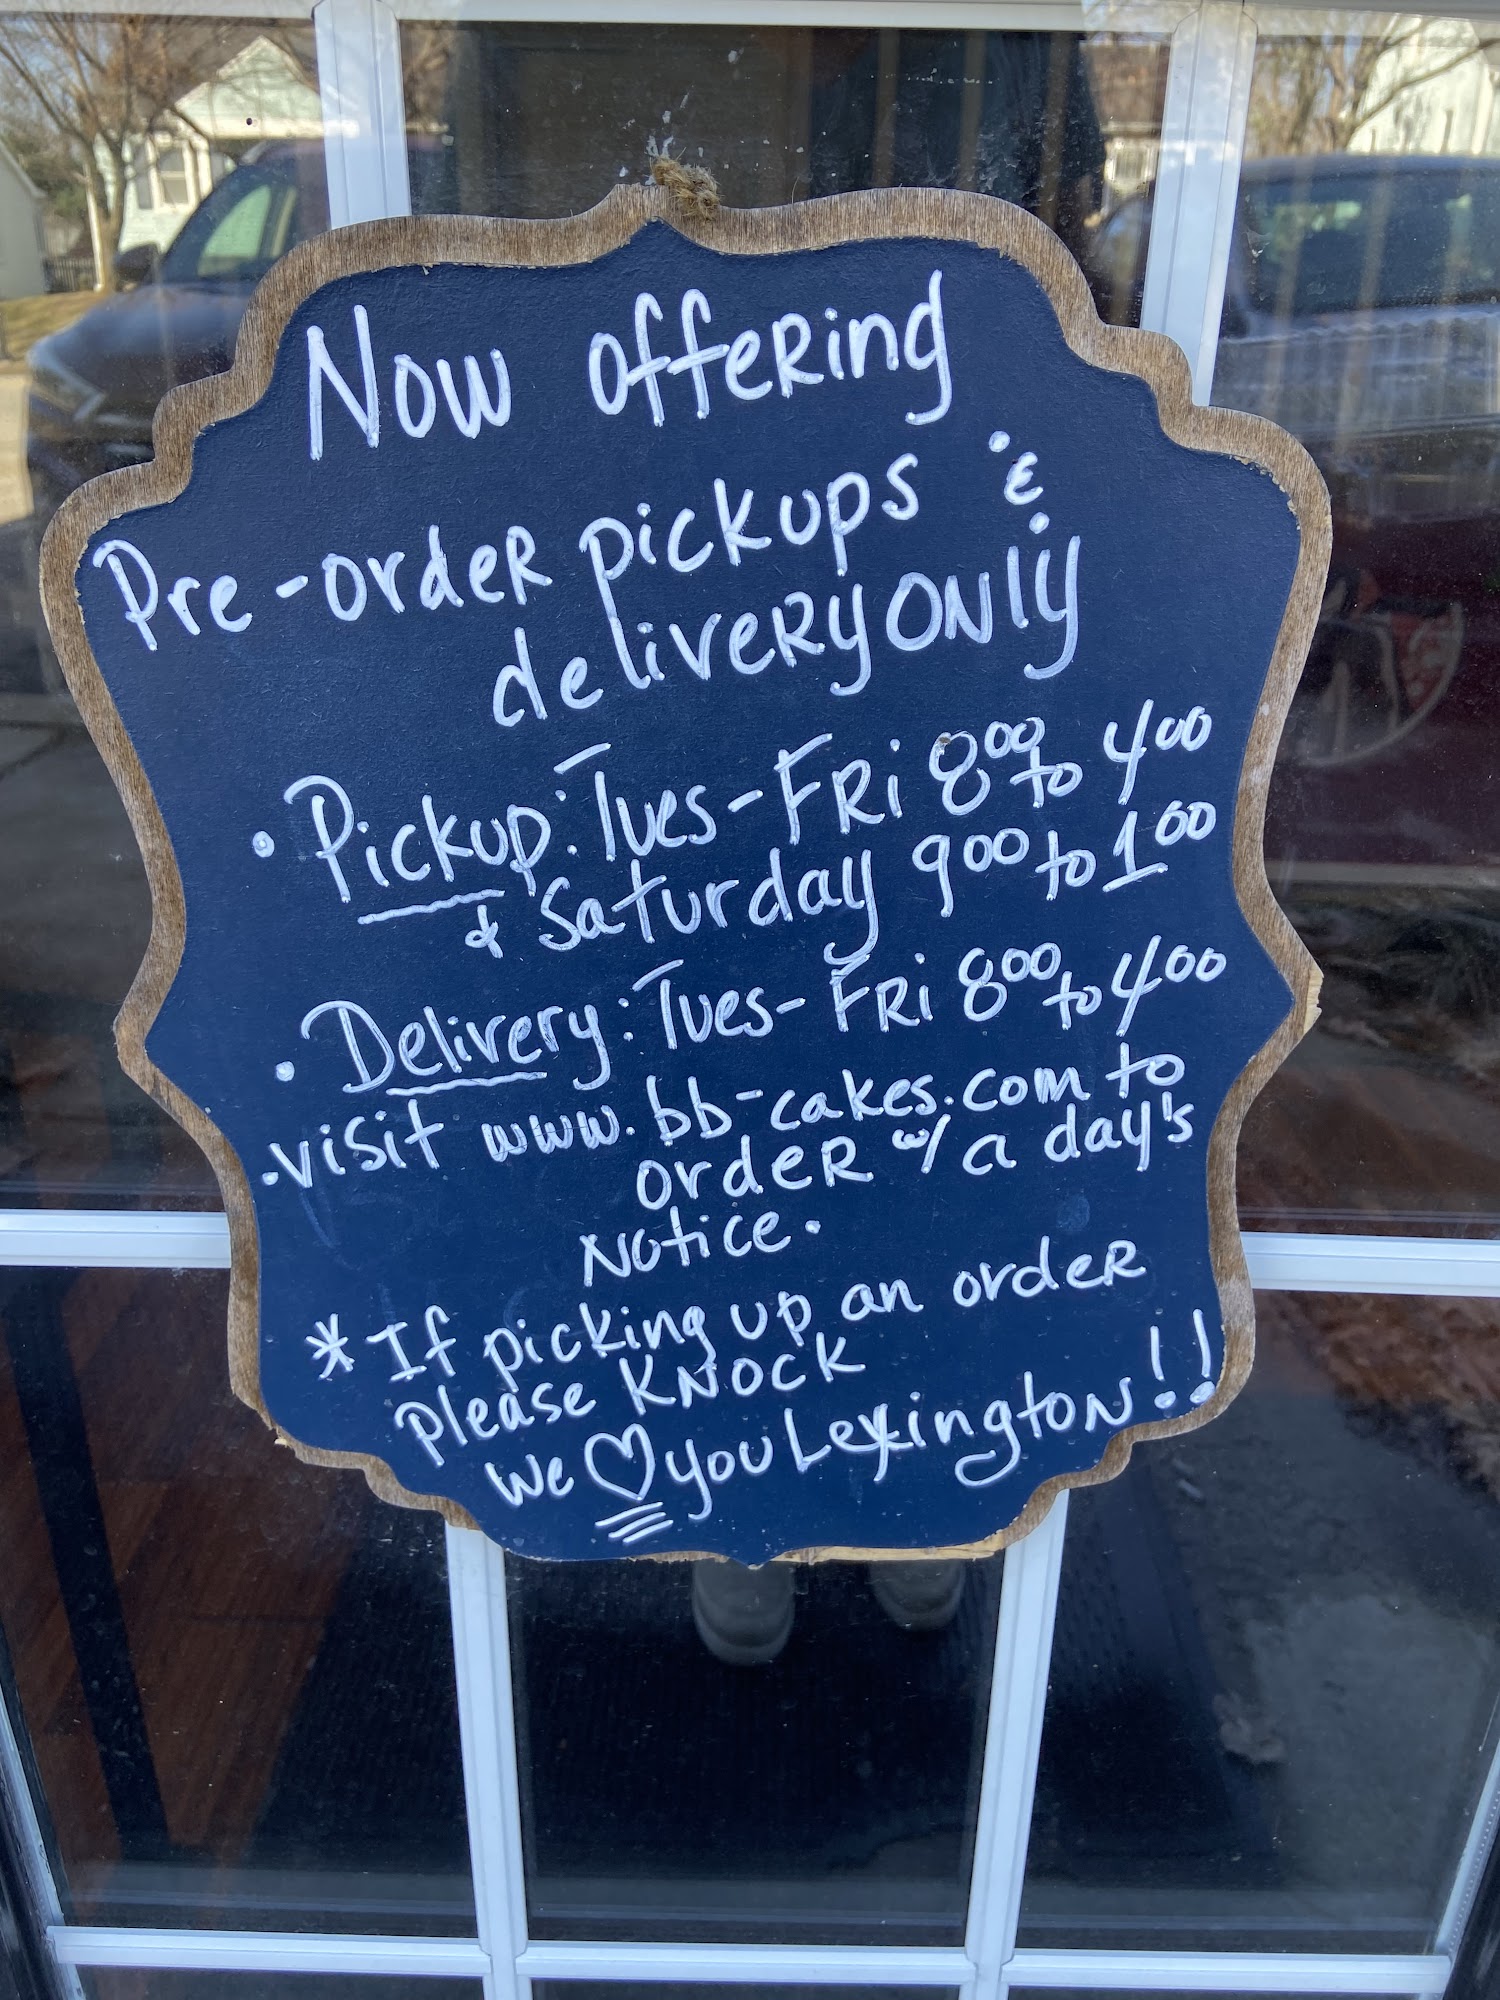 Now offering
Pre-order pickups &
delivery only
• Pickup: Tues-Fri 8:00 to 4:00
& Saturday 9:00 to 1:00
• Delivery: Tues-Fri 8:00 to 4:00
• visit www.bb-cakes.com to
order w/ a day's
Notice.
* If picking up an order
please KNOCK
We ♡ you Lexington!!